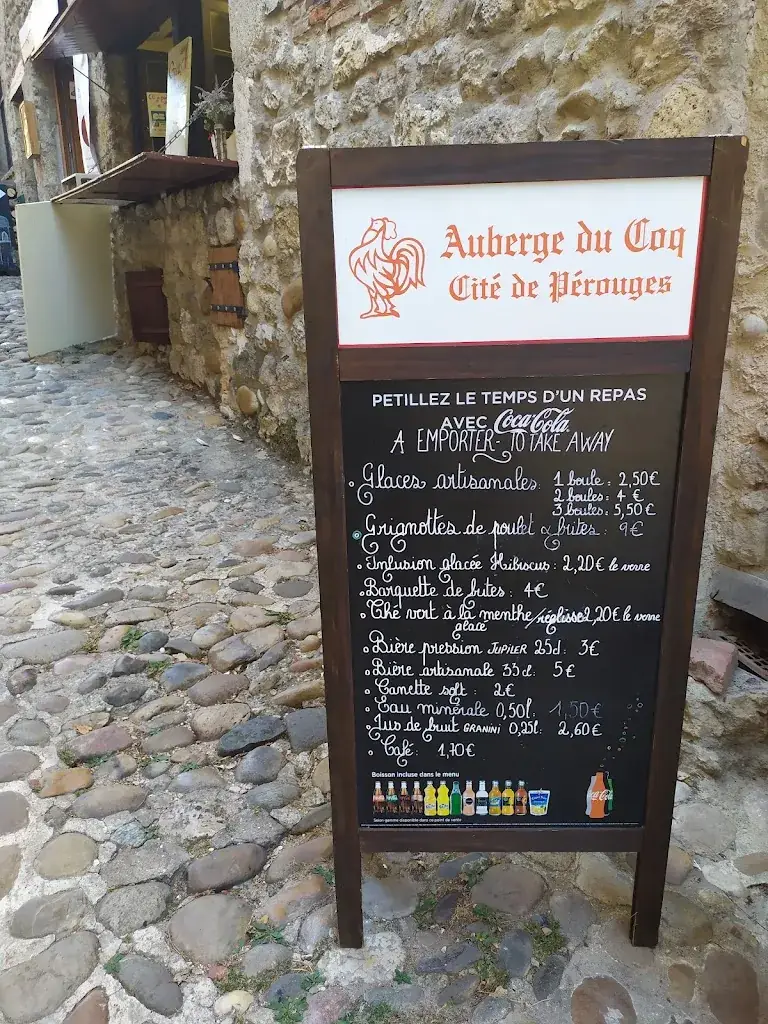 Auberge du Coq
Cité de Pérouges
PETILLEZ LE TEMPS D'UN REPAS
AVEC Coca-Cola
A EMPORTER - TO TAKE AWAY
Glaces artisanales: 1 boule: 2,50€
2 boules: 4€
3 boules: 5,50€
Grignottes de poulet & frites: 9€
Infusion glacée Hibiscus: 2,20€ le verre
Barquette de frites: 4€
Thé vert à la menthe/réglisse 2,20€ le verre
glacé
Bière pression JUPILER 25cl: 3€
Bière artisanale 33cl: 5€
Canette soft: 2€
Eau minérale 0,50l: 1,50€
Jus de fruit GRANINI 0,25l: 2,60€
Café: 1,70€
Boisson incluse dans le menu
Selon gamme disponible dans ce point de vente
Coca-Cola